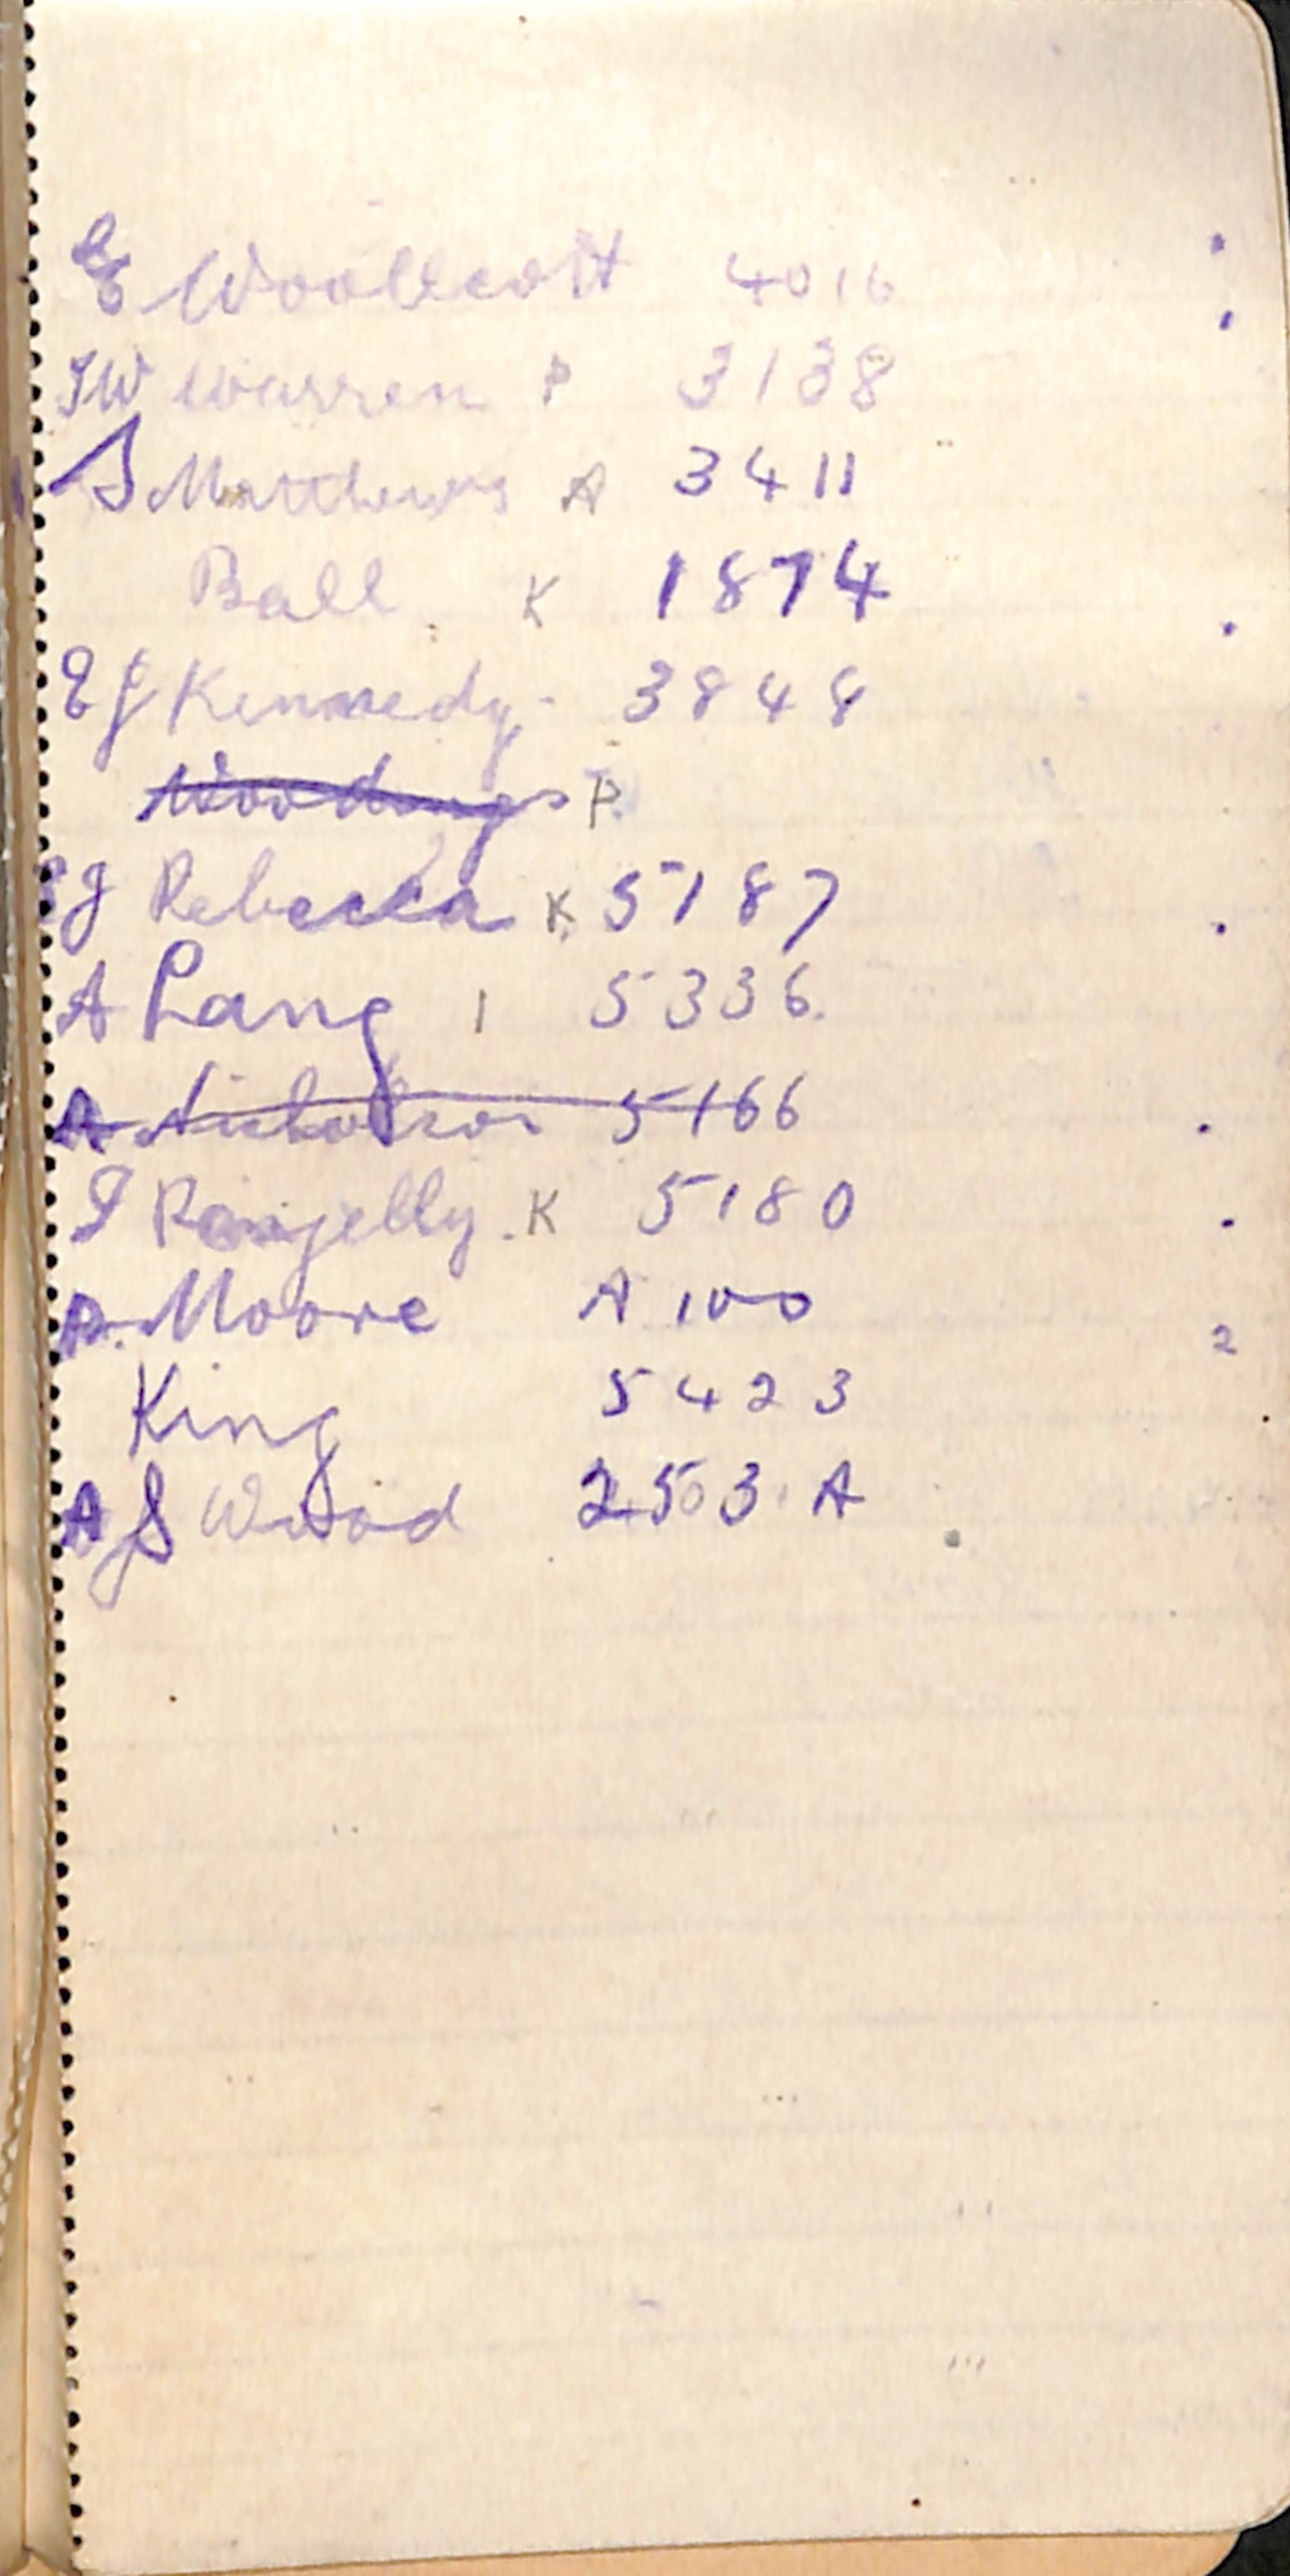 E Woollcott 4016
JW Warren P 3138
S Matthews A 3411
Ball K 1874
EJ Kennedy - 3848
Woodings P.
J Rebecca K 5187
A Lang 1 5336
A Nicholson 5166
K 5180
P. Moore A 100
2
King 5423
AJ Wood 2503 A